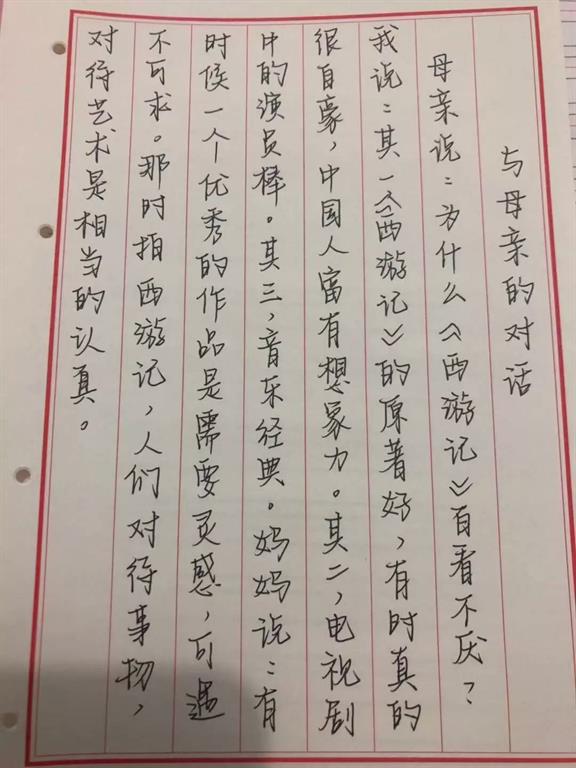 与母亲的对话
母亲说：为什么《西游记》百看不厌？
我说：其一《西游记》的原著好，有时真的
很自豪，中国人富有想象力。其二，电视剧
中的演员棒。其三，音乐经典。妈妈说：有
时候一个优秀的作品是需要灵感，可遇
不可求。那时拍西游记，人们对待事物，
对待艺术是相当的认真。